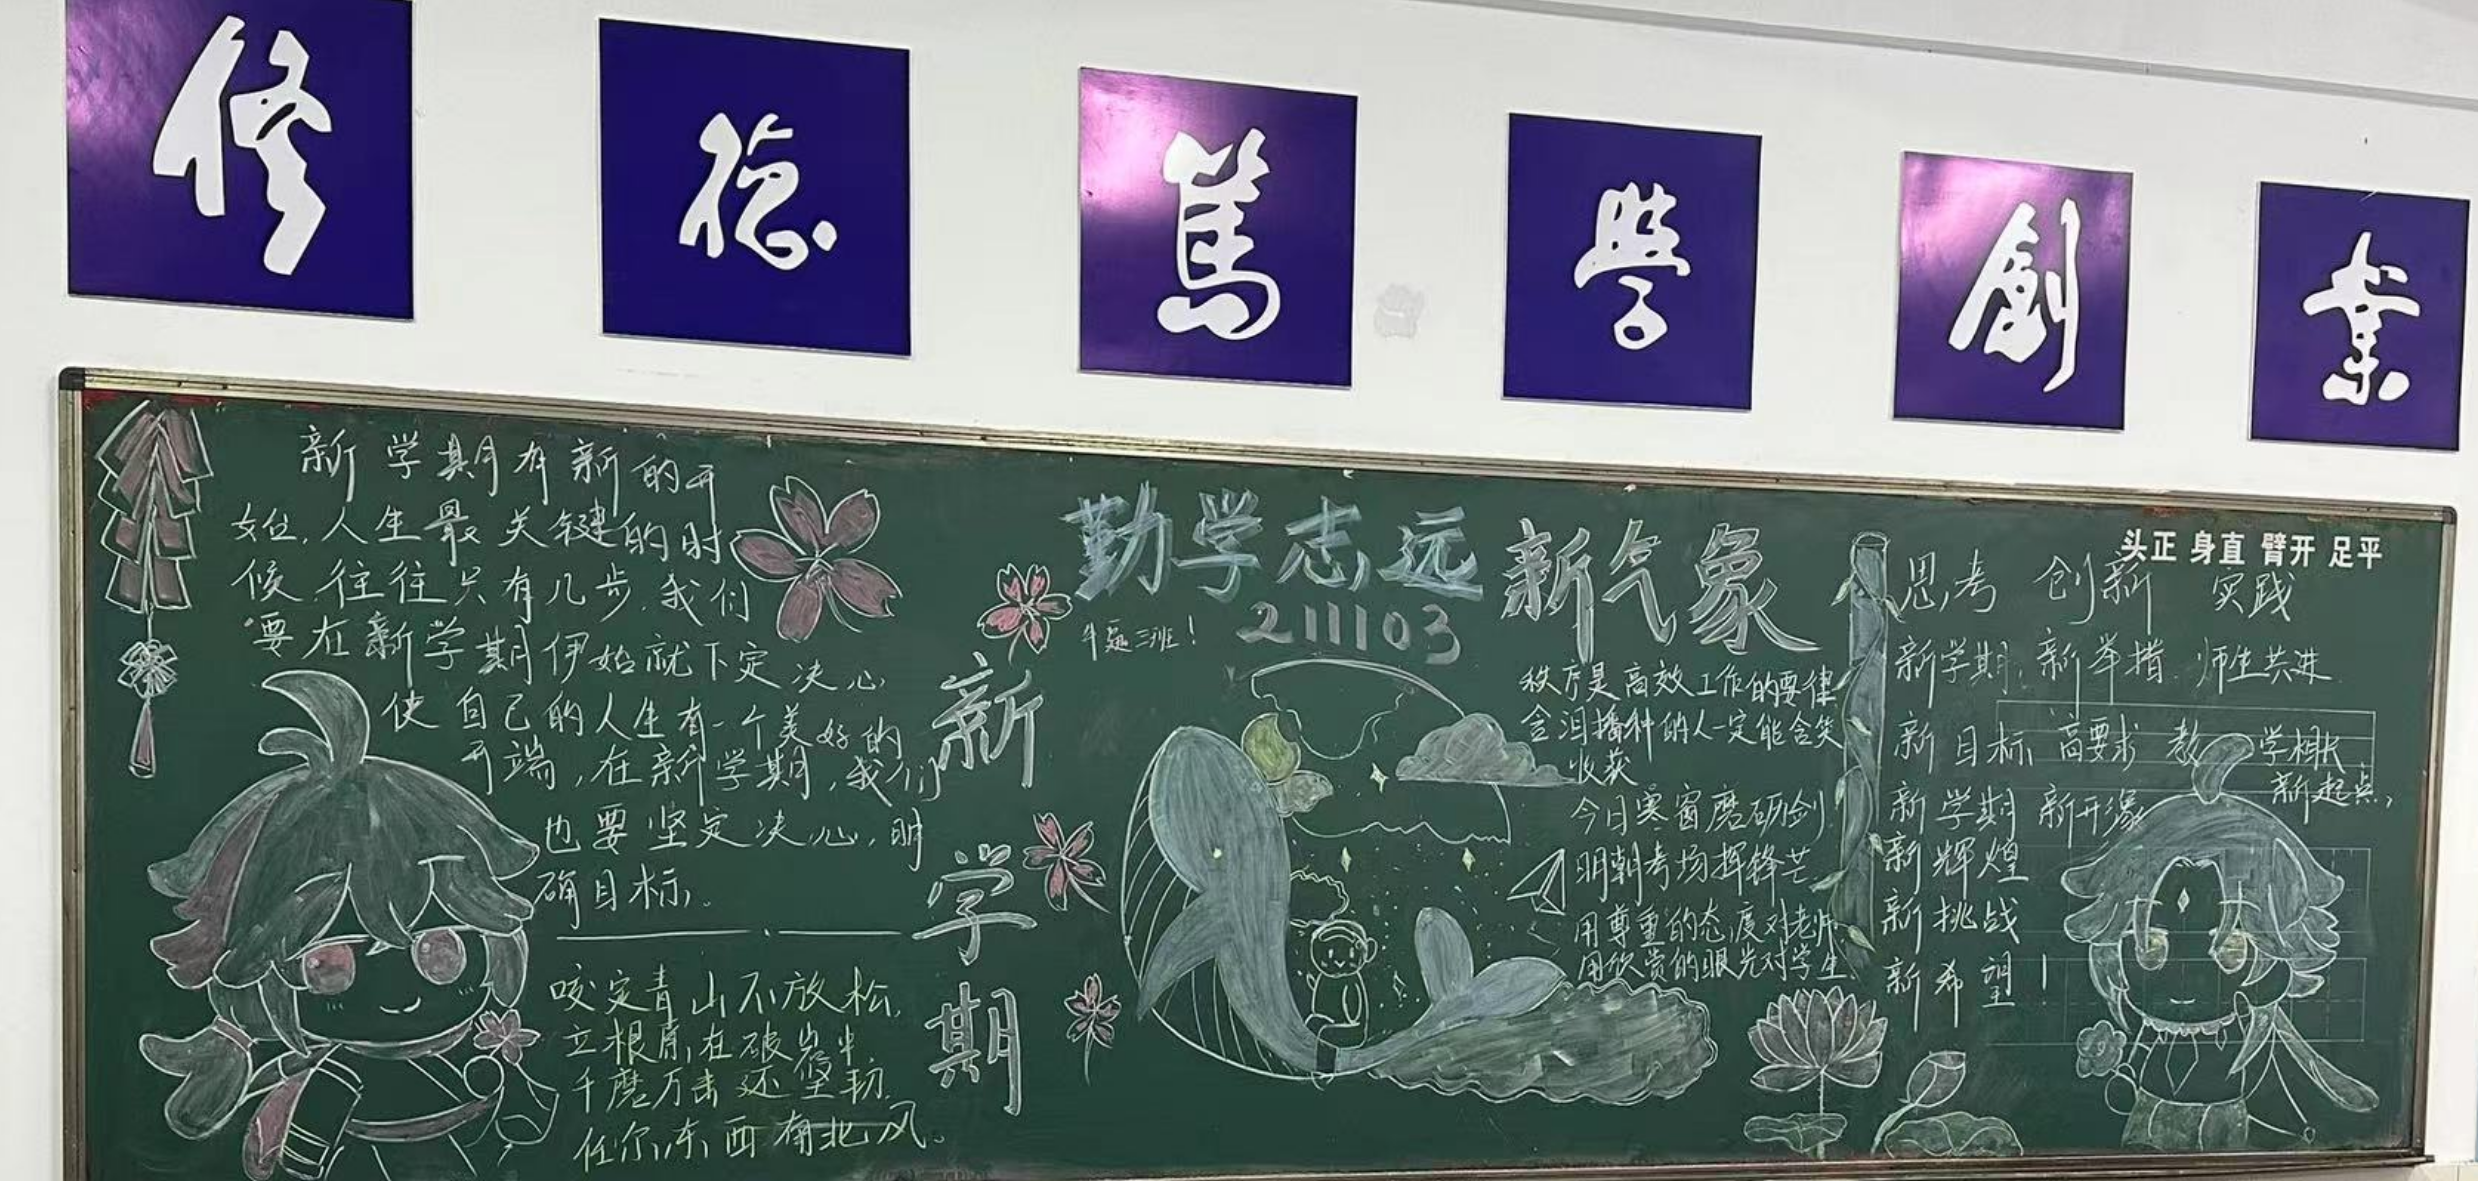 修德篤學創業
新学期有新的开
始,人生最关键的时
候,往往只有几步,我们
要在新学期伊始就下定决心
使自己的人生有一个美好的
开端,在新学期,我们
也要坚定决心,明
确目标。
咬定青山不放松,
立根原在破岩中
千磨万击还坚韧,
任尔东西南北风。
新学期
勤学志远
新气象
211103
三班!
秩序是高效工作的要律
含泪播种的人一定能含笑
收获
今日寒窗磨砺剑
明朝考场挥锋芒
用尊重的态度对老师
用欣赏的眼光对学生
头正 身直 臂开 足平
思考 创新 实践
新学期,新举措 师生共进
新目标 高要求 教学相长
新学期 新开缘 新起点,
新辉煌
新挑战
新希望!